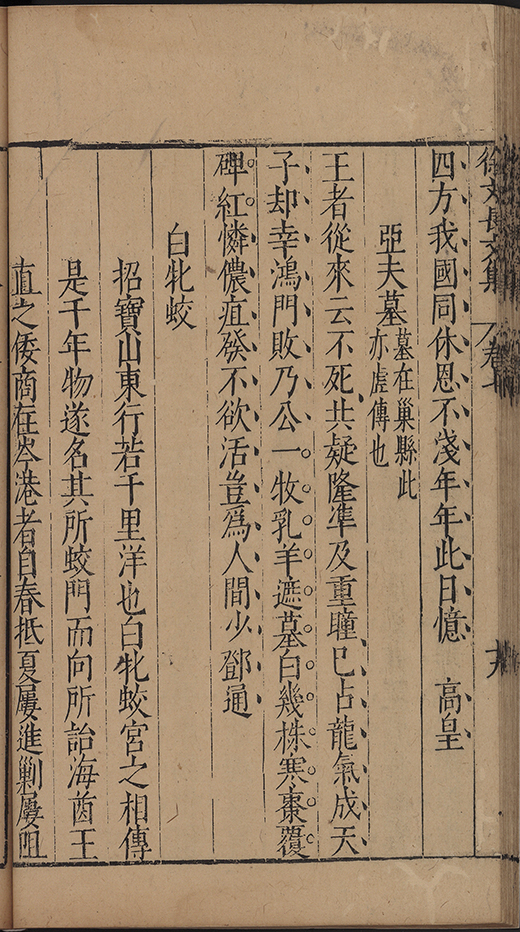 徐文長文集 卷七 十六
四方我國同休恩不淺年年此日憶 高皇
亞夫墓 墓在巢縣此
亦虛傳也
王者從來云不死共疑隆準及重瞳已占龍氣成天
子却幸鴻門敗乃公一牧乳羊遮墓白幾株寒棗覆
碑紅憐儂疽發不欲活豈爲人間少鄧通
白牝蛟
招寶山東行若干里洋也白牝蛟宮之相傳
是千年物遂名其所蛟門而向所詒海酋王
直之倭商在岑港者自春抵夏屢進剿屢阻